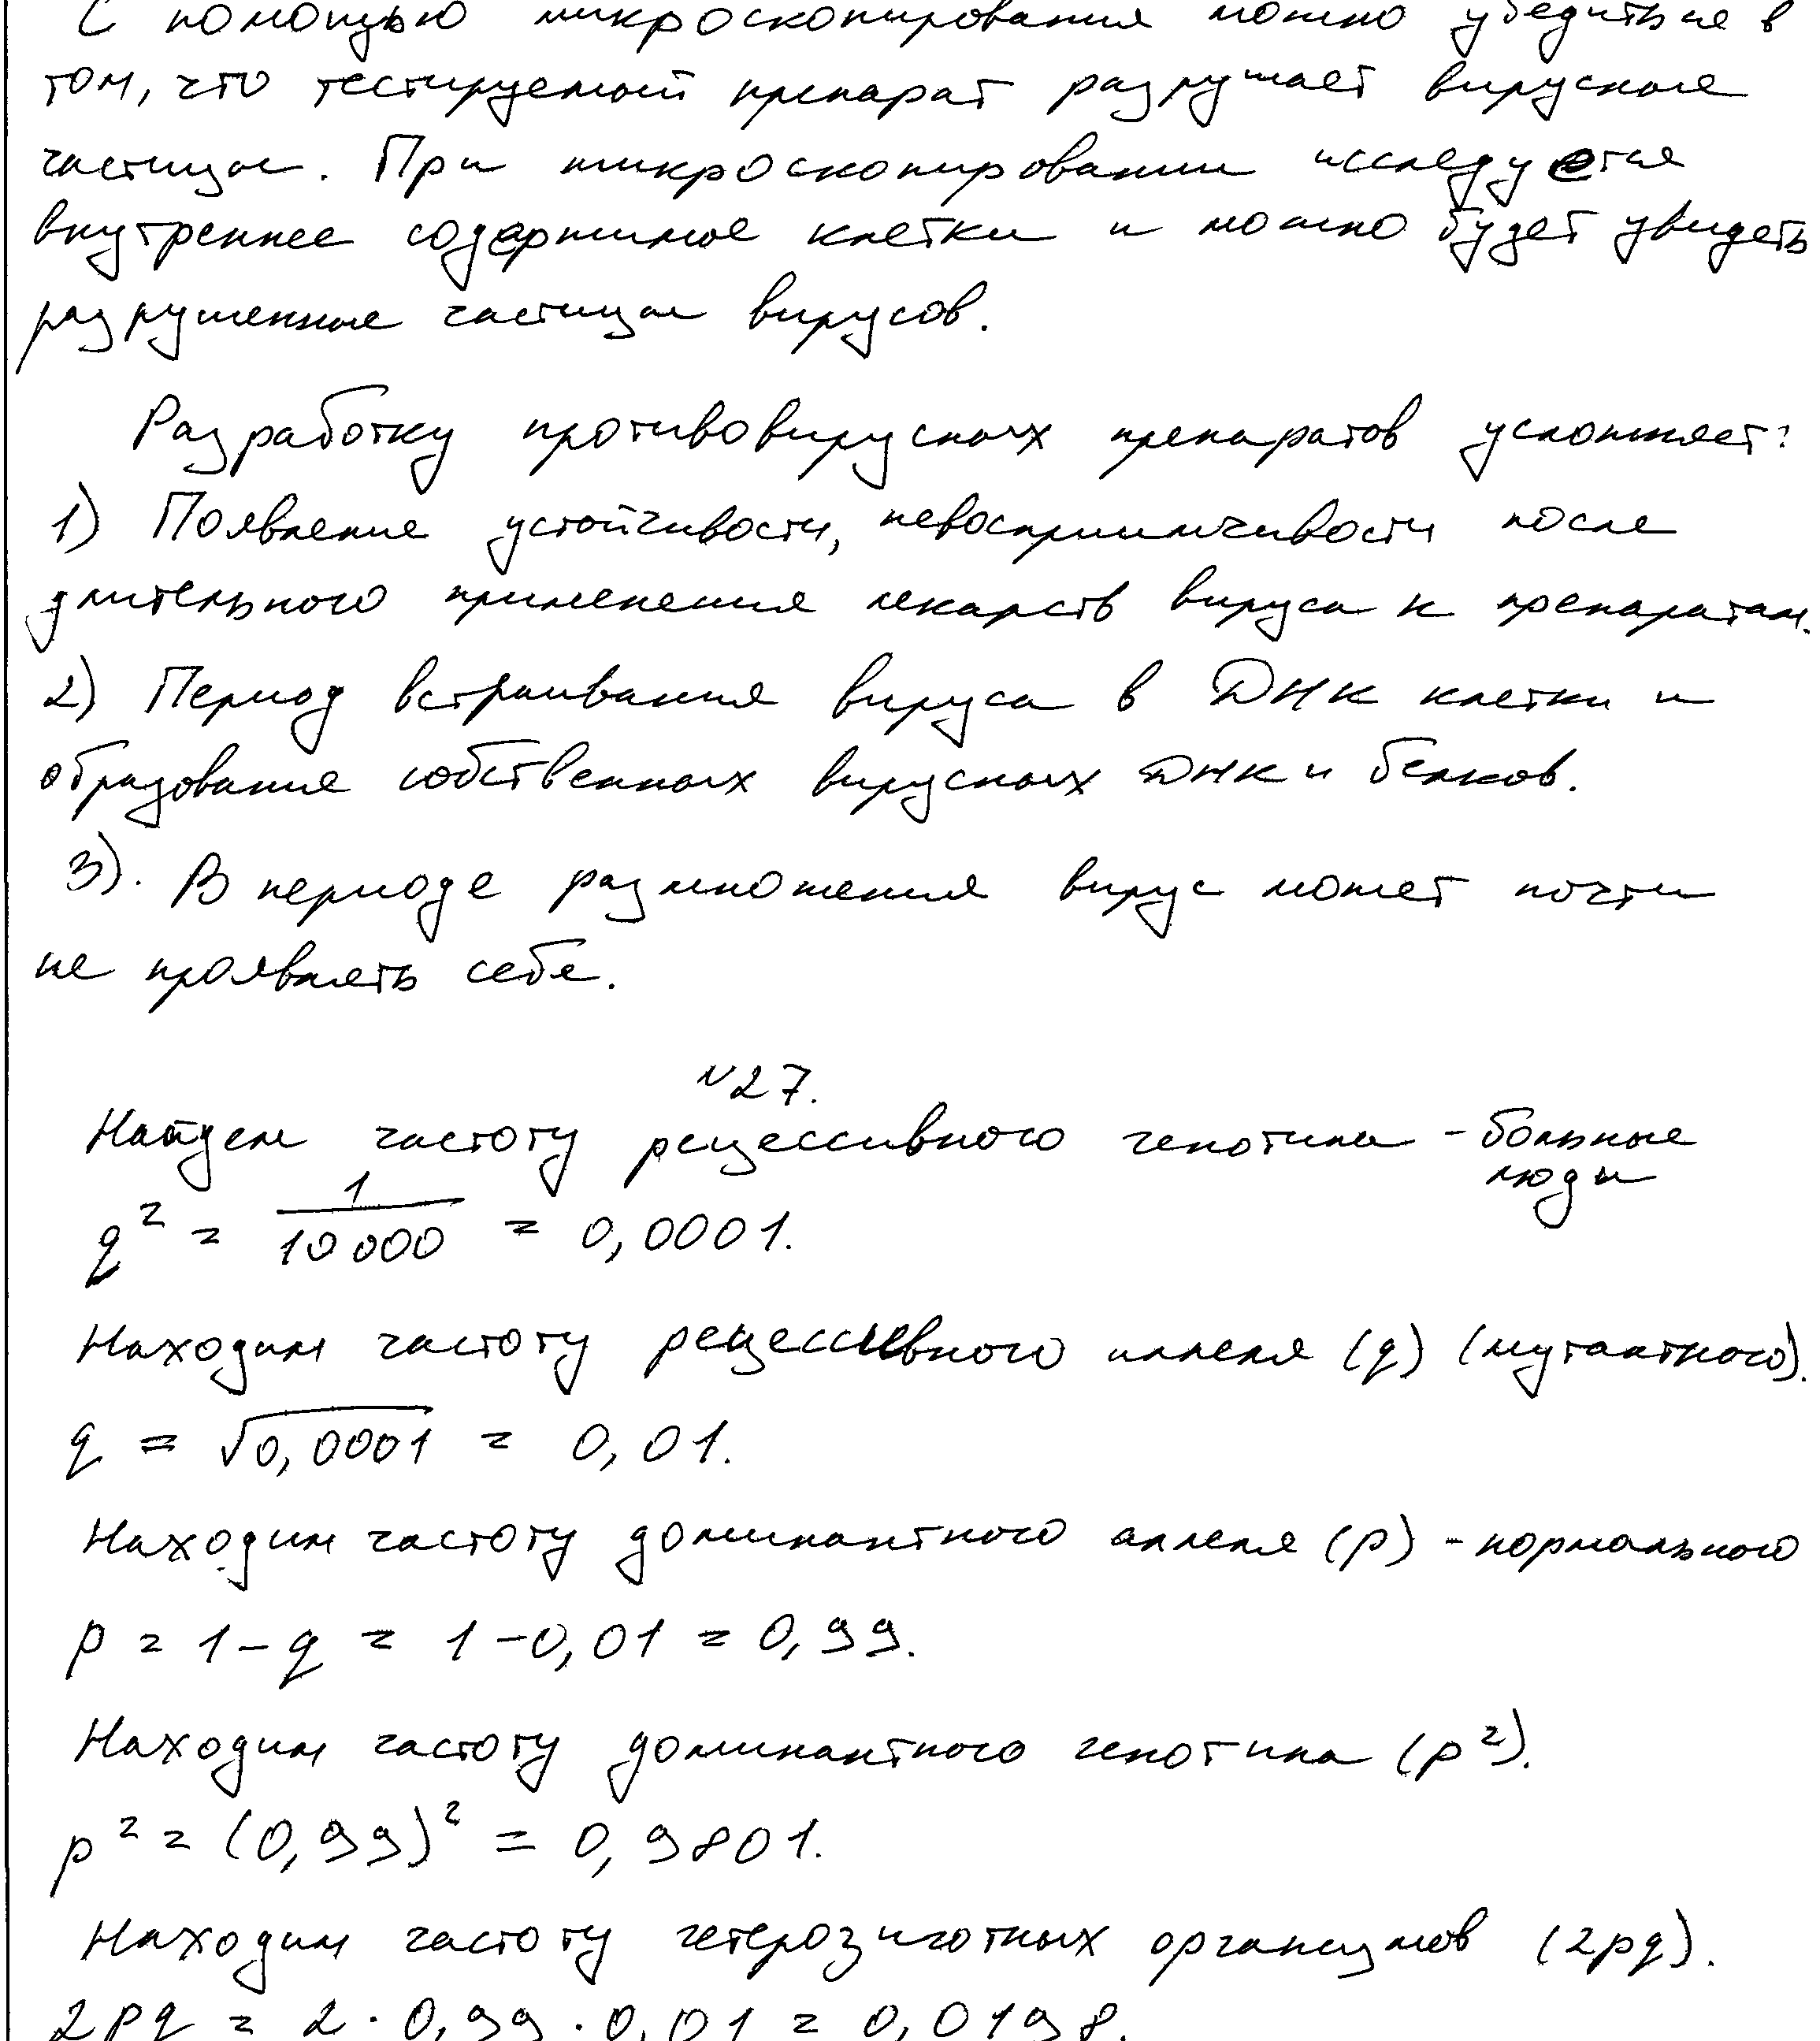 С помощью микроскопирования можно убедиться в
том, что тестируемый препарат разрушает вирусные
частицы. При микроскопировании исследуется
внутреннее содержимое клетки и можно будет увидеть
разрушенные частицы вирусов.
Разработку противовирусных препаратов усложняет:
1) Появление устойчивости, невосприимчивости после
длительного применения лекарств вируса к препаратам.
2) Период встраивания вируса в ДНК клетки и
образование собственных вирусных ДНК и белков.
3). В периоде размножения вирус может почти
не проявлять себя.
№27.
Найдем частоту рецессивного генотипа - больные
люди
q² = 1/10000 = 0,0001.
Находим частоту рецессивного аллеля (q) (мутантного).
q = √0,0001 = 0,01.
Находим частоту доминантного аллеля (p) - нормального
p = 1 - q = 1 - 0,01 = 0,99.
Находим частоту доминантного генотипа (p²).
p² = (0,99)² = 0,9801.
Находим частоту гетерозиготных организмов (2pq).
2pq = 2 · 0,99 · 0,01 = 0,0198.